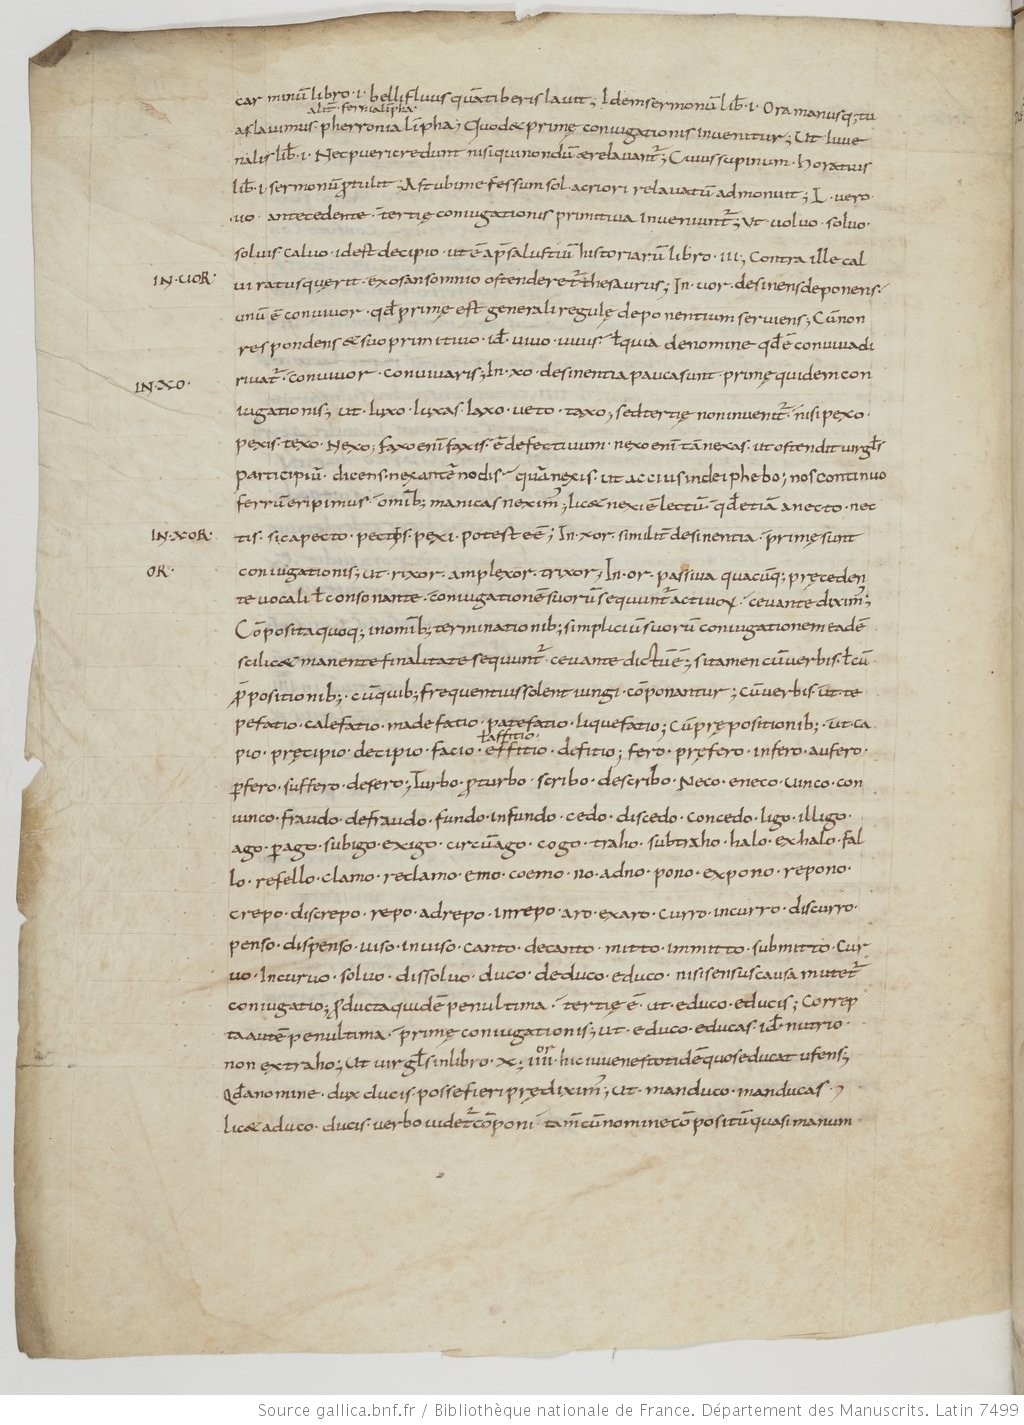 carminū libro · i · belli fluuius quā tiberis lauit ; Idem sermonū lib̄ · i · Ora manusq; tu
alit̄ · feronia lipha ·
as lauimus · pherronia lipha ; Quod & primę coniugationis inuenitur ; Ut Iuue
nalis lib̄ · i · Nec pueri credunt nisi qui nondū aere lauant̄ ; Cuius supinum · horatius
lib̄ · i · sermonū ꝓtulit ; Ast ubi me fessum sol · acriori relauatū admonuit ; I · uero
uo · antecedente · tertię coniugationis primitiua inueniunt̄ ; Ut uoluo · soluo ·
soluis caluo · id est decipio · ut ē ap̄ salustiū historiarū libro · iii ; Contra ille cal
IN · UOR ·
ui ratus querit · ex o sansomnio ostenderet̄ thesaurus ; In · uor · desinens deponens ·
unū ē conuiuor · qd̄ primę est generali regulę deponentium seruiens ; Cū non
respondens & suo primitiuo · id̄ · uiuo · uiuis · ł quia de nomine qd̄ ē conuiua diri
uat̄ · conuiuor · conuiuaris ; In · xo · desinentia pauca sunt · primę quidem con
IN · XO ·
iugationis ; ut · luxo · luxas · laxo · ueto · taxo ; sed tertię non inuenit̄ · nisi pexo ·
pexis · texo · Nexo ; faxo eni faxis · ē defectiuum · nexo eni tā nexas · ut ostendit uirgl̄s
participiū · dicens · nexantē nodis · quā nexis · ut accius in deiphebo ; nos continuo
ferrū eripimus · omib; manicas nexim̄ ; lic& nexi ē lectū · qd̄ etiā a necto · nec
IN · XOR ·
tis · sic a pecto · pectis · pexi · potest eē ; In · xor · similit̄ desinentia · primę sunt
OR ·
coniugationis ; ut · rixor · amplexor · trixor ; In · or · passiua quacūq; pręceden
te uocali ł consonante · coniugationē suorū sequunt̄ actiuoꝝ · ceu ante dixim̄ ;
Cōposita quoq; in omib; terminationib; simpliciū suorū coniugationem eadē
scilic& manente finalitate sequunt̄ · ceu ante dictū ē ; si tamen cū uerbis · ł cū
p̄positionib; · cū quib; frequentius solent iungi · cōponantur ; Cū uerbis · ut · te
pefatio · calefatio · madefatio · patefatio · liquefatio ; Cū prępositionib; · ut · ca
ł affitio ·
pio · pręcipio · decipio · facio · effitio · defitio ; fero · pręfero · infero · aufero ·
ꝑfero · suffero · defero ; Turbo · ꝓturbo · scribo · describo · Neco · eneco · Uinco · con
uinco · fraudo · defraudo · fundo · infundo · cedo · discedo · concedo · ligo · illigo ·
ago · ꝑago · subigo · exigo · circūago · cogo · traho · subtraho · halo · exhalo · fal
lo · refello · clamo · reclamo · emo · coemo · no · adno · pono · expono · repono ·
crepo · discrepo · repo · adrepo · inrepo · aro · exaro · curro · incurro · discurro ·
penso · dispenso · uiso · inuiso · canto · decanto · mitto · immitto · submitto · Cur
uo · Incuruo · soluo · dissoluo · duco · deduco · educo · nisi sensus causa mutet̄
coniugatio ; ꝓducta quidē penultima · tertię ē · ut · educo · educis ; Correp
ta autē penultima · primę coniugationis ; ut · educo · educas · id̄ · nutrio ·
non extraho ; Ut uirgl̄s in libro · x · iiii or · hic iuuenes totidē quos educat ufens ;
Qd̄ a nomine · dux ducis · posse fieri prędixim̄ ; Ut · manduco · manducas ·
lic& a duco · ducis · uerbo uidet̄ cōponi · tam̄ cū nomine cōpositū quasi manum
Source gallica.bnf.fr / Bibliothèque nationale de France. Département des Manuscrits. Latin 7499